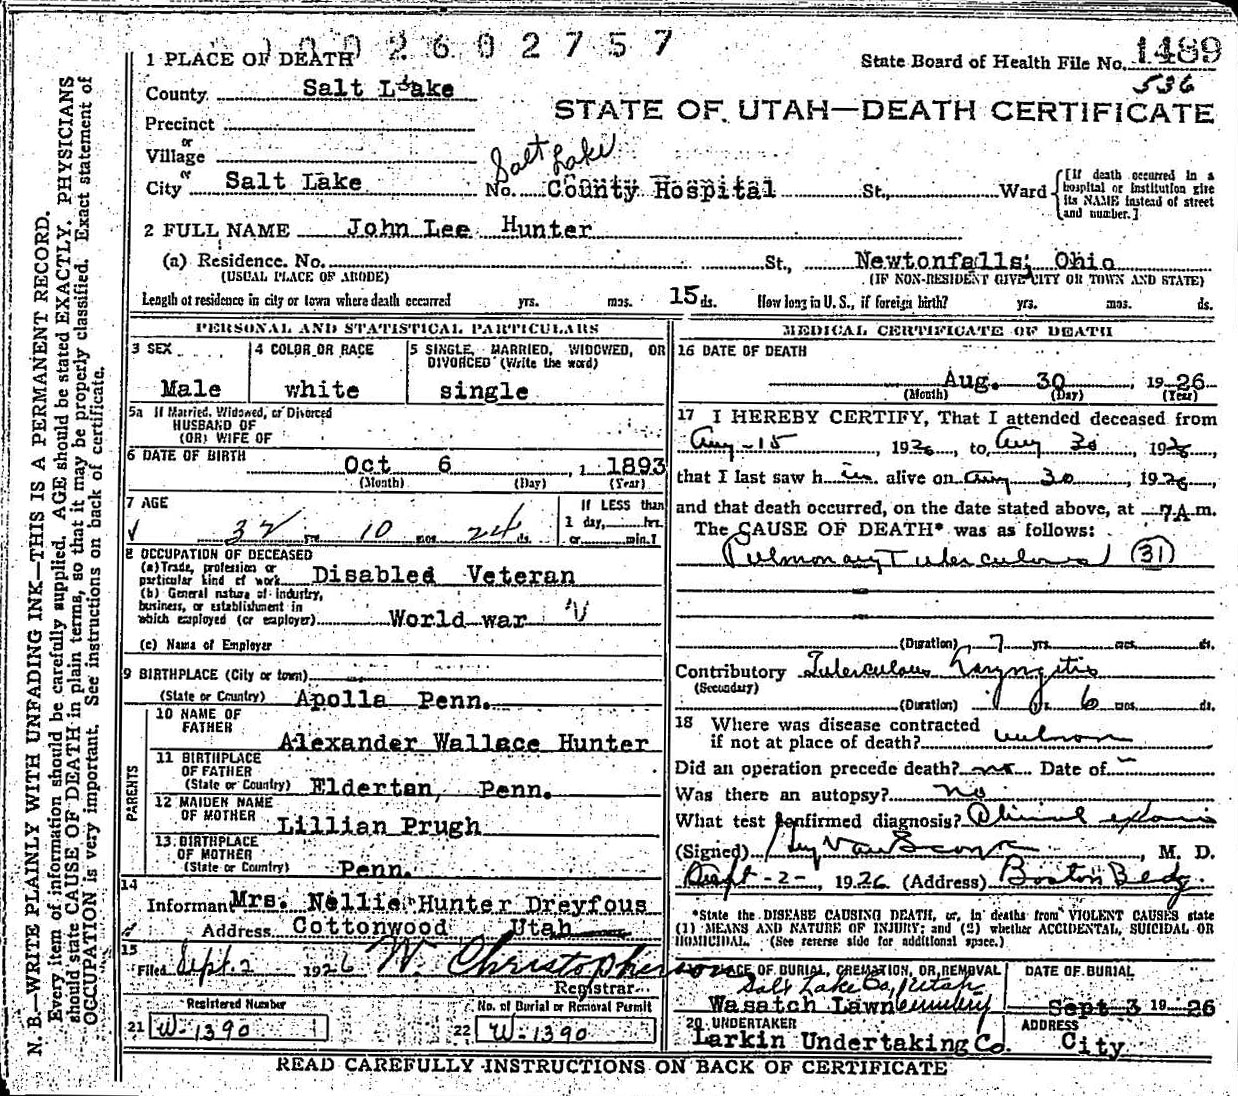 1002602757
1 PLACE OF DEATH
State Board of Health File No. 1489
536
County Salt Lake
STATE OF UTAH—DEATH CERTIFICATE
Precinct
or
Village
or
City Salt Lake No. Salt Lake County Hospital St., Ward [If death occurred in a hospital or institution give its NAME instead of street and number.]
2 FULL NAME John Lee Hunter
(a) Residence. No. St., Newtonfalls, Ohio
(USUAL PLACE OF ABODE) (IF NON-RESIDENT GIVE CITY OR TOWN AND STATE)
Length of residence in city or town where death occurred yrs. mos. 15 ds. How long in U. S., if foreign birth? yrs. mos. ds.
PERSONAL AND STATISTICAL PARTICULARS
3 SEX
Male
4 COLOR OR RACE
white
5 SINGLE, MARRIED, WIDOWED, OR DIVORCED (Write the word)
single
5a If Married, Widowed, or Divorced
HUSBAND OF
(OR) WIFE OF
6 DATE OF BIRTH
Oct 6, 1893
(Month) (Day) (Year)
7 AGE
32 yrs. 10 mos. 24 ds.
If LESS than
1 day, hrs.
or min.?
8 OCCUPATION OF DECEASED
(a) Trade, profession or
particular kind of work Disabled Veteran
(b) General nature of industry,
business, or establishment in
which employed (or employer) World war
(c) Name of Employer
9 BIRTHPLACE (City or town)
(State or Country) Apolla Penn.
PARENTS
10 NAME OF
FATHER
Alexander Wallace Hunter
11 BIRTHPLACE
OF FATHER
(State or Country) Elderton, Penn.
12 MAIDEN NAME
OF MOTHER
Lillian Prugh
13 BIRTHPLACE
OF MOTHER
(State or Country) Penn.
14
Informant Mrs. Nellie Hunter Dreyfous
Address Cottonwood Utah
15
Filed Sept. 2 1926 W. Christopherson
Registrar
Registered Number
21 W-1390
No. of Burial or Removal Permit
22 W-1390
MEDICAL CERTIFICATE OF DEATH
16 DATE OF DEATH
Aug. 30, 1926
(Month) (Day) (Year)
17 I HEREBY CERTIFY, That I attended deceased from
Aug-15, 1926, to Aug 30 1926,
that I last saw h im alive on Aug 30, 1926,
and that death occurred, on the date stated above, at 7 A m.
The CAUSE OF DEATH* was as follows:
Pulmonary Tuberculosis (31)
(Duration) 7 yrs. mos. ds.
Contributory Tuberculous Laryngitis
(Secondary)
(Duration) yrs. 6 mos. ds.
18 Where was disease contracted
if not at place of death? unknown
Did an operation precede death? no Date of
Was there an autopsy? no
What test confirmed diagnosis? Clinical
(Signed) M. D.
Sept-2-, 1926 (Address) Boston Bldg.
*State the DISEASE CAUSING DEATH, or, in deaths from VIOLENT CAUSES state
(1) MEANS AND NATURE OF INJURY; and (2) whether ACCIDENTAL, SUICIDAL OR
HOMICIDAL. (See reverse side for additional space.)
PLACE OF BURIAL, CREMATION, OR REMOVAL
Salt Lake Co, Utah
Wasatch Lawn Cemetery
DATE OF BURIAL
Sept 3 1926
20 UNDERTAKER
Larkin Undertaking Co.
ADDRESS
City
READ CAREFULLY INSTRUCTIONS ON BACK OF CERTIFICATE
N. B.—WRITE PLAINLY WITH UNFADING INK—THIS IS A PERMANENT RECORD.
Every item of information should be carefully supplied. AGE should be stated EXACTLY. PHYSICIANS
should state CAUSE OF DEATH in plain terms, so that it may be properly classified. Exact statement of
OCCUPATION is very important. See instructions on back of certificate.